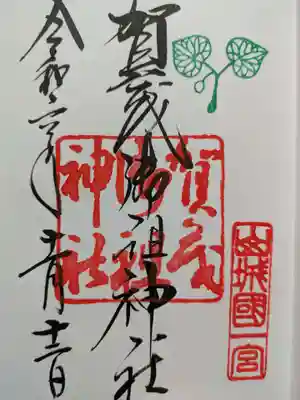 山城國一宮
賀茂御祖神社
賀茂
御祖
神社
令和六年十一月十二日